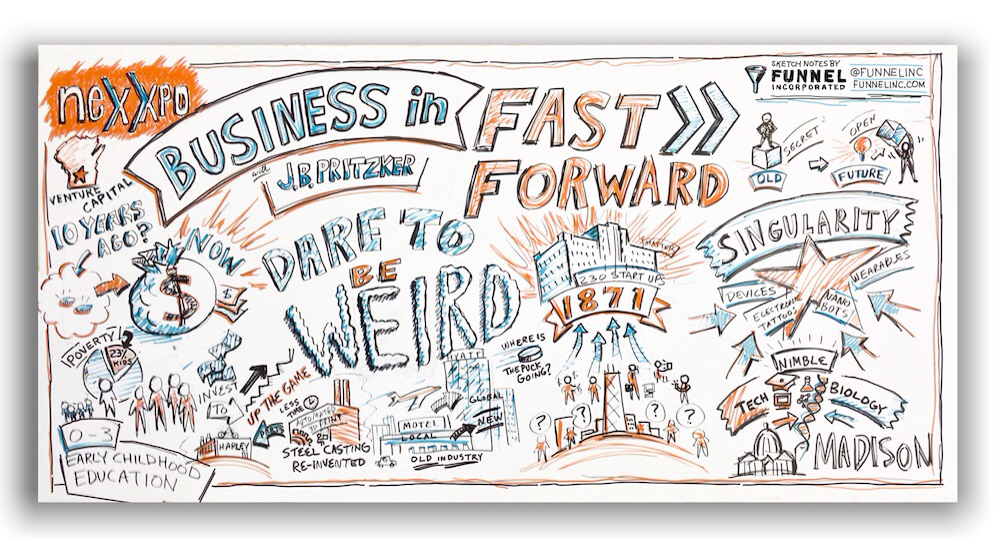 neXXpo
BUSINESS in
with
J.B. PRITZKER
FAST
FORWARD
SKETCH NOTES BY
FUNNEL
INCORPORATED
@FUNNELINC
FUNNELINC.COM
VENTURE
CAPITAL
10 YEARS
AGO?
NOW
$
DARE TO
BE
WEIRD
220 START UPS
1871
SECRET
OLD
OPEN
FUTURE
SINGULARITY
DEVICES
ELECTRONIC
TATTOOS
NANO
BOTS
WEARABLES
NIMBLE
TECH
BIOLOGY
MADISON
POVERTY
KIDS
0-3
EARLY CHILDHOOD
EDUCATION
INVEST
TO
HARLEY
UP THE GAME
LESS
TIME
STEEL CASTING
RE-INVENTED
HYATT
MOTEL
LOCAL
OLD INDUSTRY
GLOBAL
NEW
WHERE IS
THE PUCK
GOING?
? ? ? ?